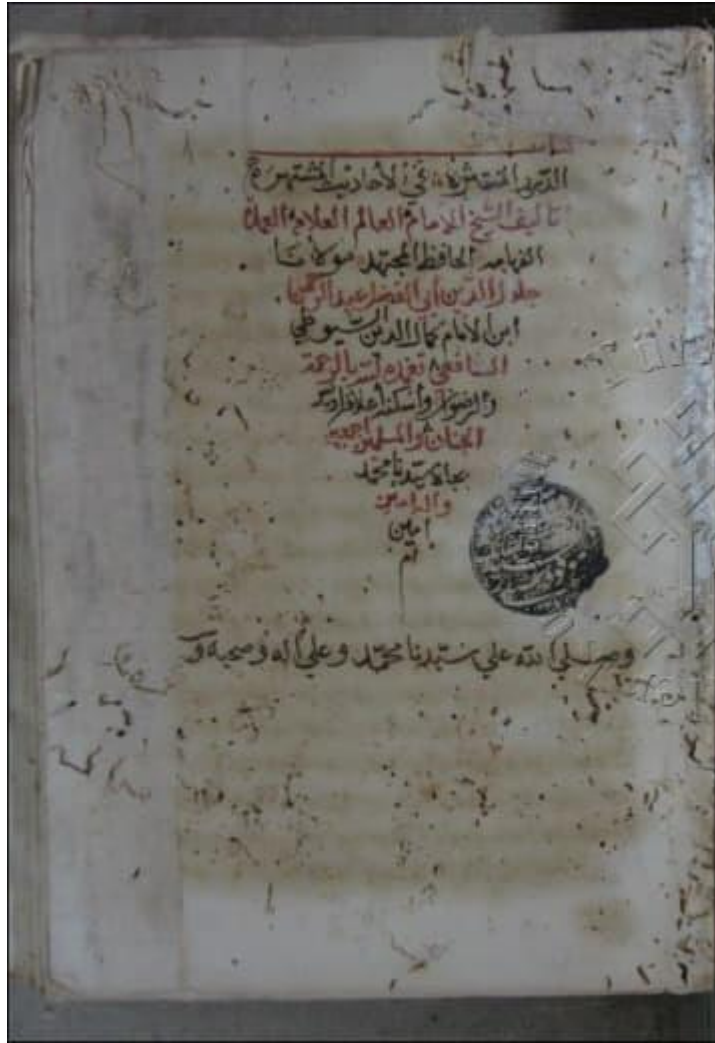 كتاب
الدرر المنتثرة في الاحاديث المشتهرة
تاليف الشيخ الامام العالم العلامة العمدة
الفهامه الحافظ المجتهد مولانا
جلال الدين ابي الفضل عبد الرحمن
ابن الامام كمال الدين السيوطي
الشافعي تغمده الله بالرحمة
والرضوان وأسكنه أعلا فراديس
الجنان والمسلمين اجمعين
بجاه سيدنا محمد
امين
تم
وصلي الله علي سيدنا محمد وعلي اله وصحبه و